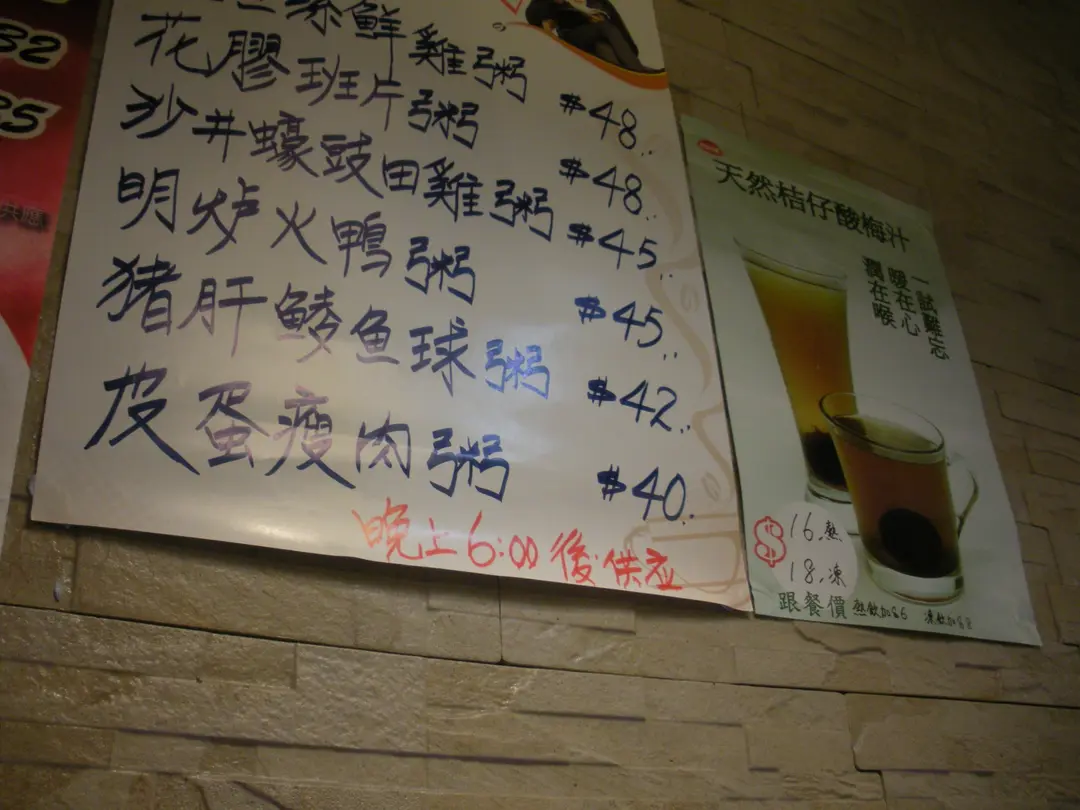 82
85
供應
鮮雞粥 $48
花膠班片粥 $48
沙井蠔豉田雞粥 $45
明炉火鴨粥 $45
猪肝鯪鱼球粥 $42
皮蛋瘦肉粥 $40
晚上6:00後供应
天然桔仔酸梅汁
一試難忘
暖在心
潤在喉
$ 16.熱
18.凍
跟餐價 熱飲加$6 凍飲加$8